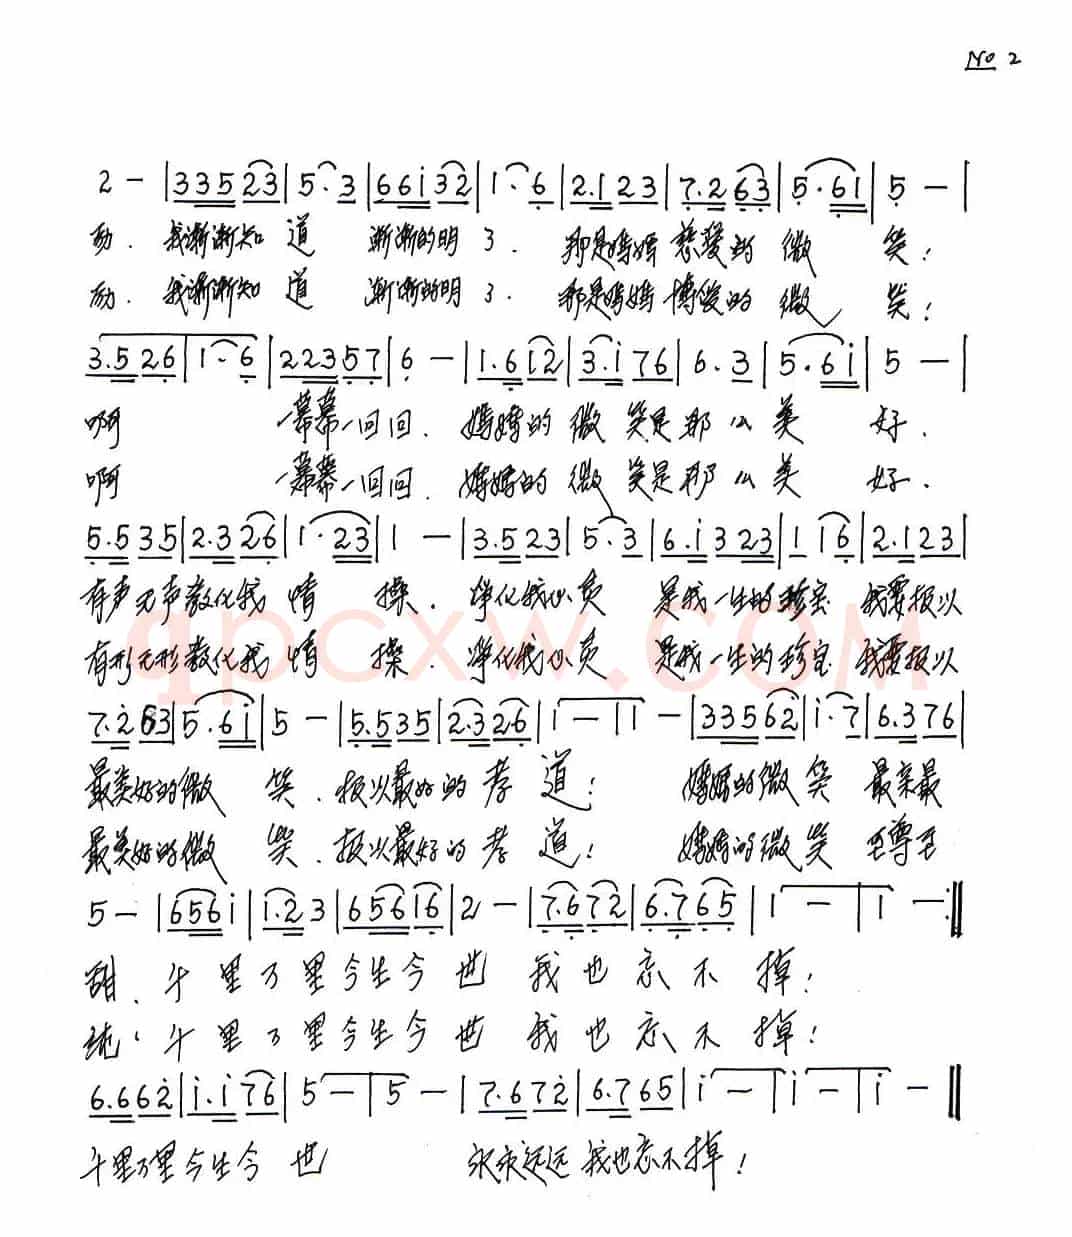 No 2
2 — | 3 3 5 2 3 | 5 · 3 | 6 6 i 3 2 | 1 · 6 | 2. 1 2 3 | 7. 2 6 3 | 5 · 6 1 | 5 — |
动. 我渐渐知道 渐渐的明了. 那是妈妈慈爱的微笑!
励. 我渐渐知道 渐渐的明了. 那是妈妈博爱的微笑!
3. 5 2 6 | 1 · 6 | 2 2 3 5 7 | 6 — | 1. 6 i 2 | 3. i 7 6 | 6. 3 | 5 · 6 i | 5 — |
啊 一幕幕一回回. 妈妈的微笑是那么美好.
啊 一幕幕一回回. 妈妈的微笑是那么美好.
5. 5 3 5 | 2. 3 2 6 | 1 · 2 3 | 1 — | 3. 5 2 3 | 5 · 3 | 6. i 3 2 3 | 1 1 6 | 2. 1 2 3 |
有声无声教化我情操. 净化我心灵 是我一生的珍宝 我要报以
有形无形教化我情操. 净化我心灵 是我一生的珍宝 我要报以
7. 2 6 3 | 5. 6 i | 5 — | 5. 5 3 5 | 2. 3 2 6 | 1 — | 1 — | 3 3 5 6 2 | i · 7 | 6. 3 7 6 |
最美好的微笑. 报以最好的孝道! 妈妈的微笑最亲最
最美好的微笑. 报以最好的孝道! 妈妈的微笑至尊至
5 — | 6 5 6 i | i. 2 3 | 6 5 6 1 6 | 2 — | 7. 6 7 2 | 6. 7 6 5 | 1 — | 1 — :||
甜. 千里万里今生今世 我也忘不掉!
纯! 千里万里今生今世 我也忘不掉!
6. 6 6 2 | i. i 7 6 | 5 — | 5 — | 7. 6 7 2 | 6. 7 6 5 | i — | i — | i — ||
千里万里今生今世 永永远远我也忘不掉!
qpcxw.com